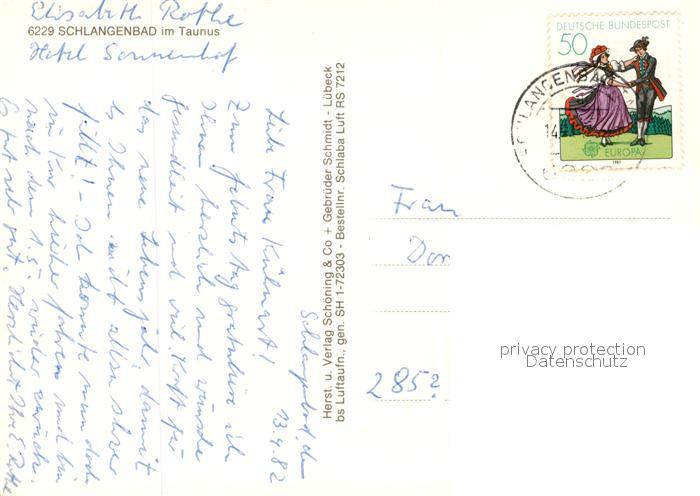 Elisabeth Rothe
6229 SCHLANGENBAD im Taunus
Hotel Sonnenhof
Schlangenbad, den
13.4.82
Liebe Frau Kühnert!
Zum Geburtstag gratuliere ich
Ihnen herzlich und wünsche
Gesundheit und viel Kraft für
das neue Lebensjahr, damit
es Ihnen nicht allzu schwer
fällt! - Ich konnte nun doch
zur Kur hierher fahren und bin
nach dem 1.5. wieder zurück.
Es tut sehr gut. Herzlichst Ihre E. Rothe
Herst. u. Verlag Schöning & Co + Gebrüder Schmidt - Lübeck
bs Luftaufn., gen. SH 1-72303 - Bestellnr. Schlaba Luft RS 7212
DEUTSCHE BUNDESPOST
50
EUROPA
1981
SCHLANGENBAD
14.
Frau
Dor
285?
privacy protection
Datenschutz